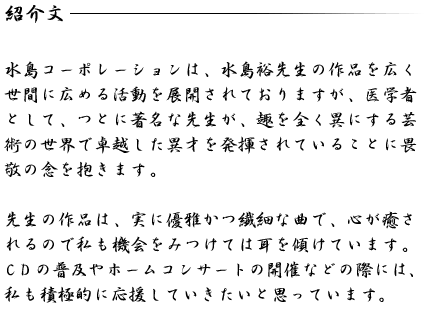 紹介文
水島コーポレーションは、水島裕先生の作品を広く
世間に広める活動を展開されておりますが、医学者
として、つとに著名な先生が、趣を全く異にする芸
術の世界で卓越した異才を発揮されていることに畏
敬の念を抱きます。
先生の作品は、実に優雅かつ繊細な曲で、心が癒さ
れるので私も機会をみつけては耳を傾けています。
CDの普及やホームコンサートの開催などの際には、
私も積極的に応援していきたいと思っています。